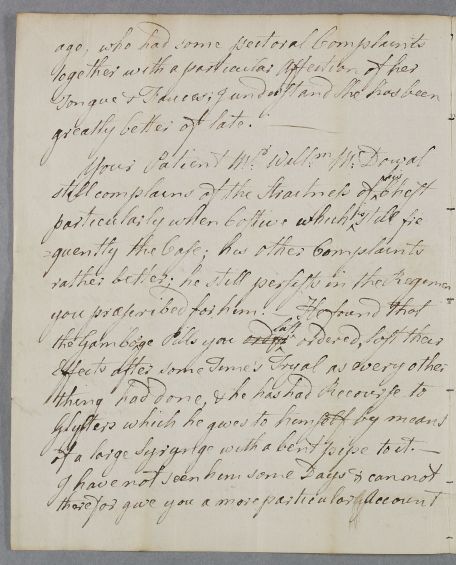 ago, who had some pectoral Complaints
together with a particular Affection of her
Tongue & Fauces; I understand She has been
greatly better of late. —
Your Patient Mr. Willm. Mc. Dowal
still complains of the Straitness of his Chest
particularly when Costive which is still fre
=quently the Case; his other Complaints
rather better; he still persists in the Regimen
you præscribed for him. He found that
the Gamboge Pills you last ordered, lost their
Effects after some Time's Tryal as every other
thing had done, & he has had Recourse to
Glysters which he gives to himself by means
of a large Syrange with a bent pipe to it. —
I have not seen him some Days & cannot
therefor give you a more particular Account